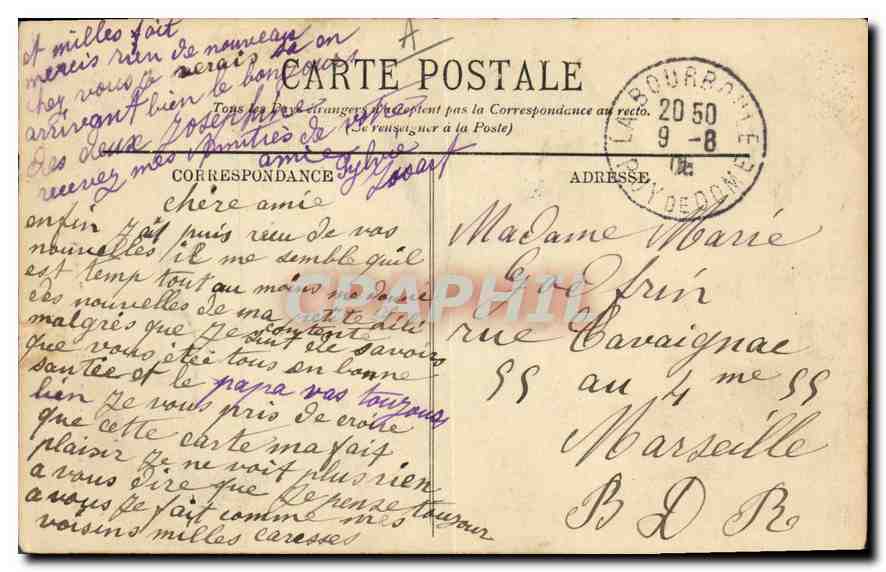 et milles fait
mercis rien de nouveau
chez vous sa verais sa on
arrivant bien le bonjours
des deux Josephine
recevez mes amitiés de votre
amie Sylvie
A
CARTE POSTALE
Tous les Pays étrangers n'acceptent pas la Correspondance au recto.
(Se renseigner à la Poste)
LA BOURBOULE
20 50
9 -8
PUY DE DOME
CORRESPONDANCE
chère amie
enfin j'ait puis recu de vos
nouvelles il me semble quil
est temp tout au moins me donne
des nouvelles de ma petite
malgrés que je suit contente de savoirs
que vous étée tous en bonne
santée et le papa vas toujous
bien je vous pris de croire
que cette carte ma fait
plaisir je ne voit plus rien
a vous dire que je pense toujour
a vous je fait comme mes
voisins milles caresses
ADRESSE
Madame Marie
rue Cavaignac
55 au 4me 55
Marseille
B D R
CPAPHIL